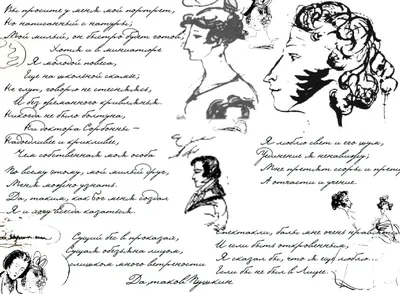 Вы просите у меня мой портрет,
Но написанный с натуры;
Мой милый, он быстро будет готов,
Хотя и в миниатюре
Я молодой повеса,
Еще на школьной скамье;
Не глуп, говорю не стесняясь,
И без жеманного кривлянья.
Никогда не было болтуна,
Ни доктора Сорбонны -
Надоедливее и крикливее,
Чем собственная моя особа
По всему этому, мой милый друг,
Меня можно узнать.
Да, таким, как бог меня создал
Я и хочу всегда казаться.
Сущий бес в проказах,
Сущая обезьяна лицом,
слишком много ветрености
Да таков Пушкин
Я люблю свет и его шум,
Уединение я ненавижу;
Мне претят ссоры и
А отчасти и учение.
Спектакли, балы мне очень нравятся
И если быть откровенным,
Я сказал бы, что я еще люблю...
Если бы не был в Лицее.